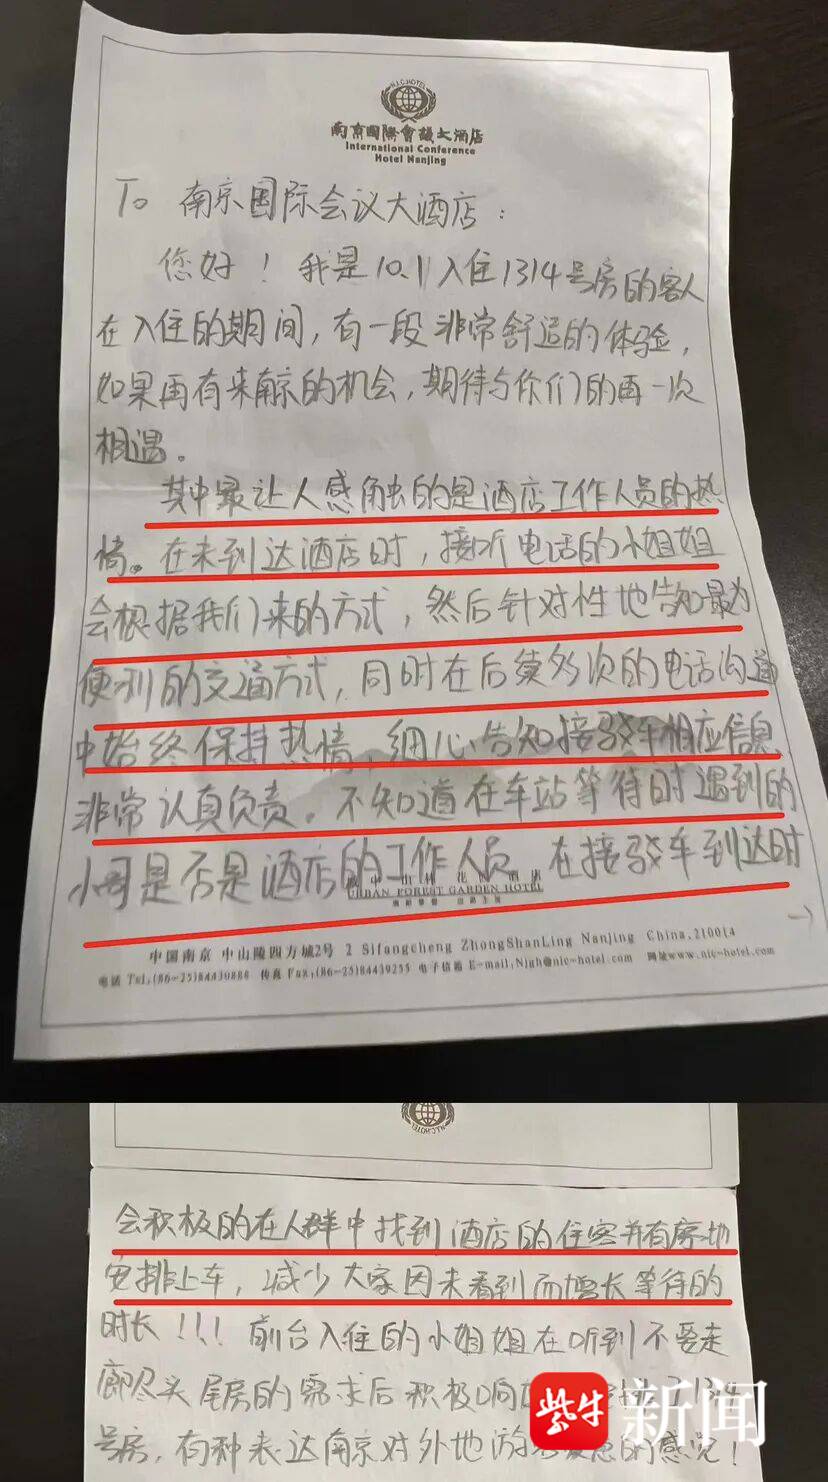 N.I.C.HOTEL
南京國際會議大酒店
International Conference
Hotel Nanjing
To 南京国际会议大酒店：
您好！我是10.1入住1314号房的客人
在入住的期间，有一段非常舒适的体验，
如果再有来南京的机会，期待与你们的再一次
相遇。
其中最让人感触的是酒店工作人员的热
情。在未到达酒店时，接听电话的小姐姐
会根据我们来的方式，然后针对性地告知最为
便利的交通方式，同时在后续多次的电话沟通
中始终保持热情，细心告知接驳车相应信息，
非常认真负责。不知道在车站等待时遇到的
小哥是否是酒店的工作人员，在接驳车到达时
URBAN FOREST GARDEN HOTEL
→
中国南京 中山陵四方城2号 2 Sifangcheng ZhongShanLing Nanjing China,210014
电话 Tel,(86-25)84430888 传真 Fax,(86-25)84439255 电子信箱 E-mail,Nigh@nic-hotel.com 网址www.nic-hotel.com
会积极的在人群中找到酒店的住客并有序地
安排上车，减少大家因未看到而增长等待的
时长！！！前台入住的小姐姐在听到不要走
廊尽头尾房的需求后积极响应 了1314
号房，有种表达南京对外地游 的感觉！
紫牛新闻